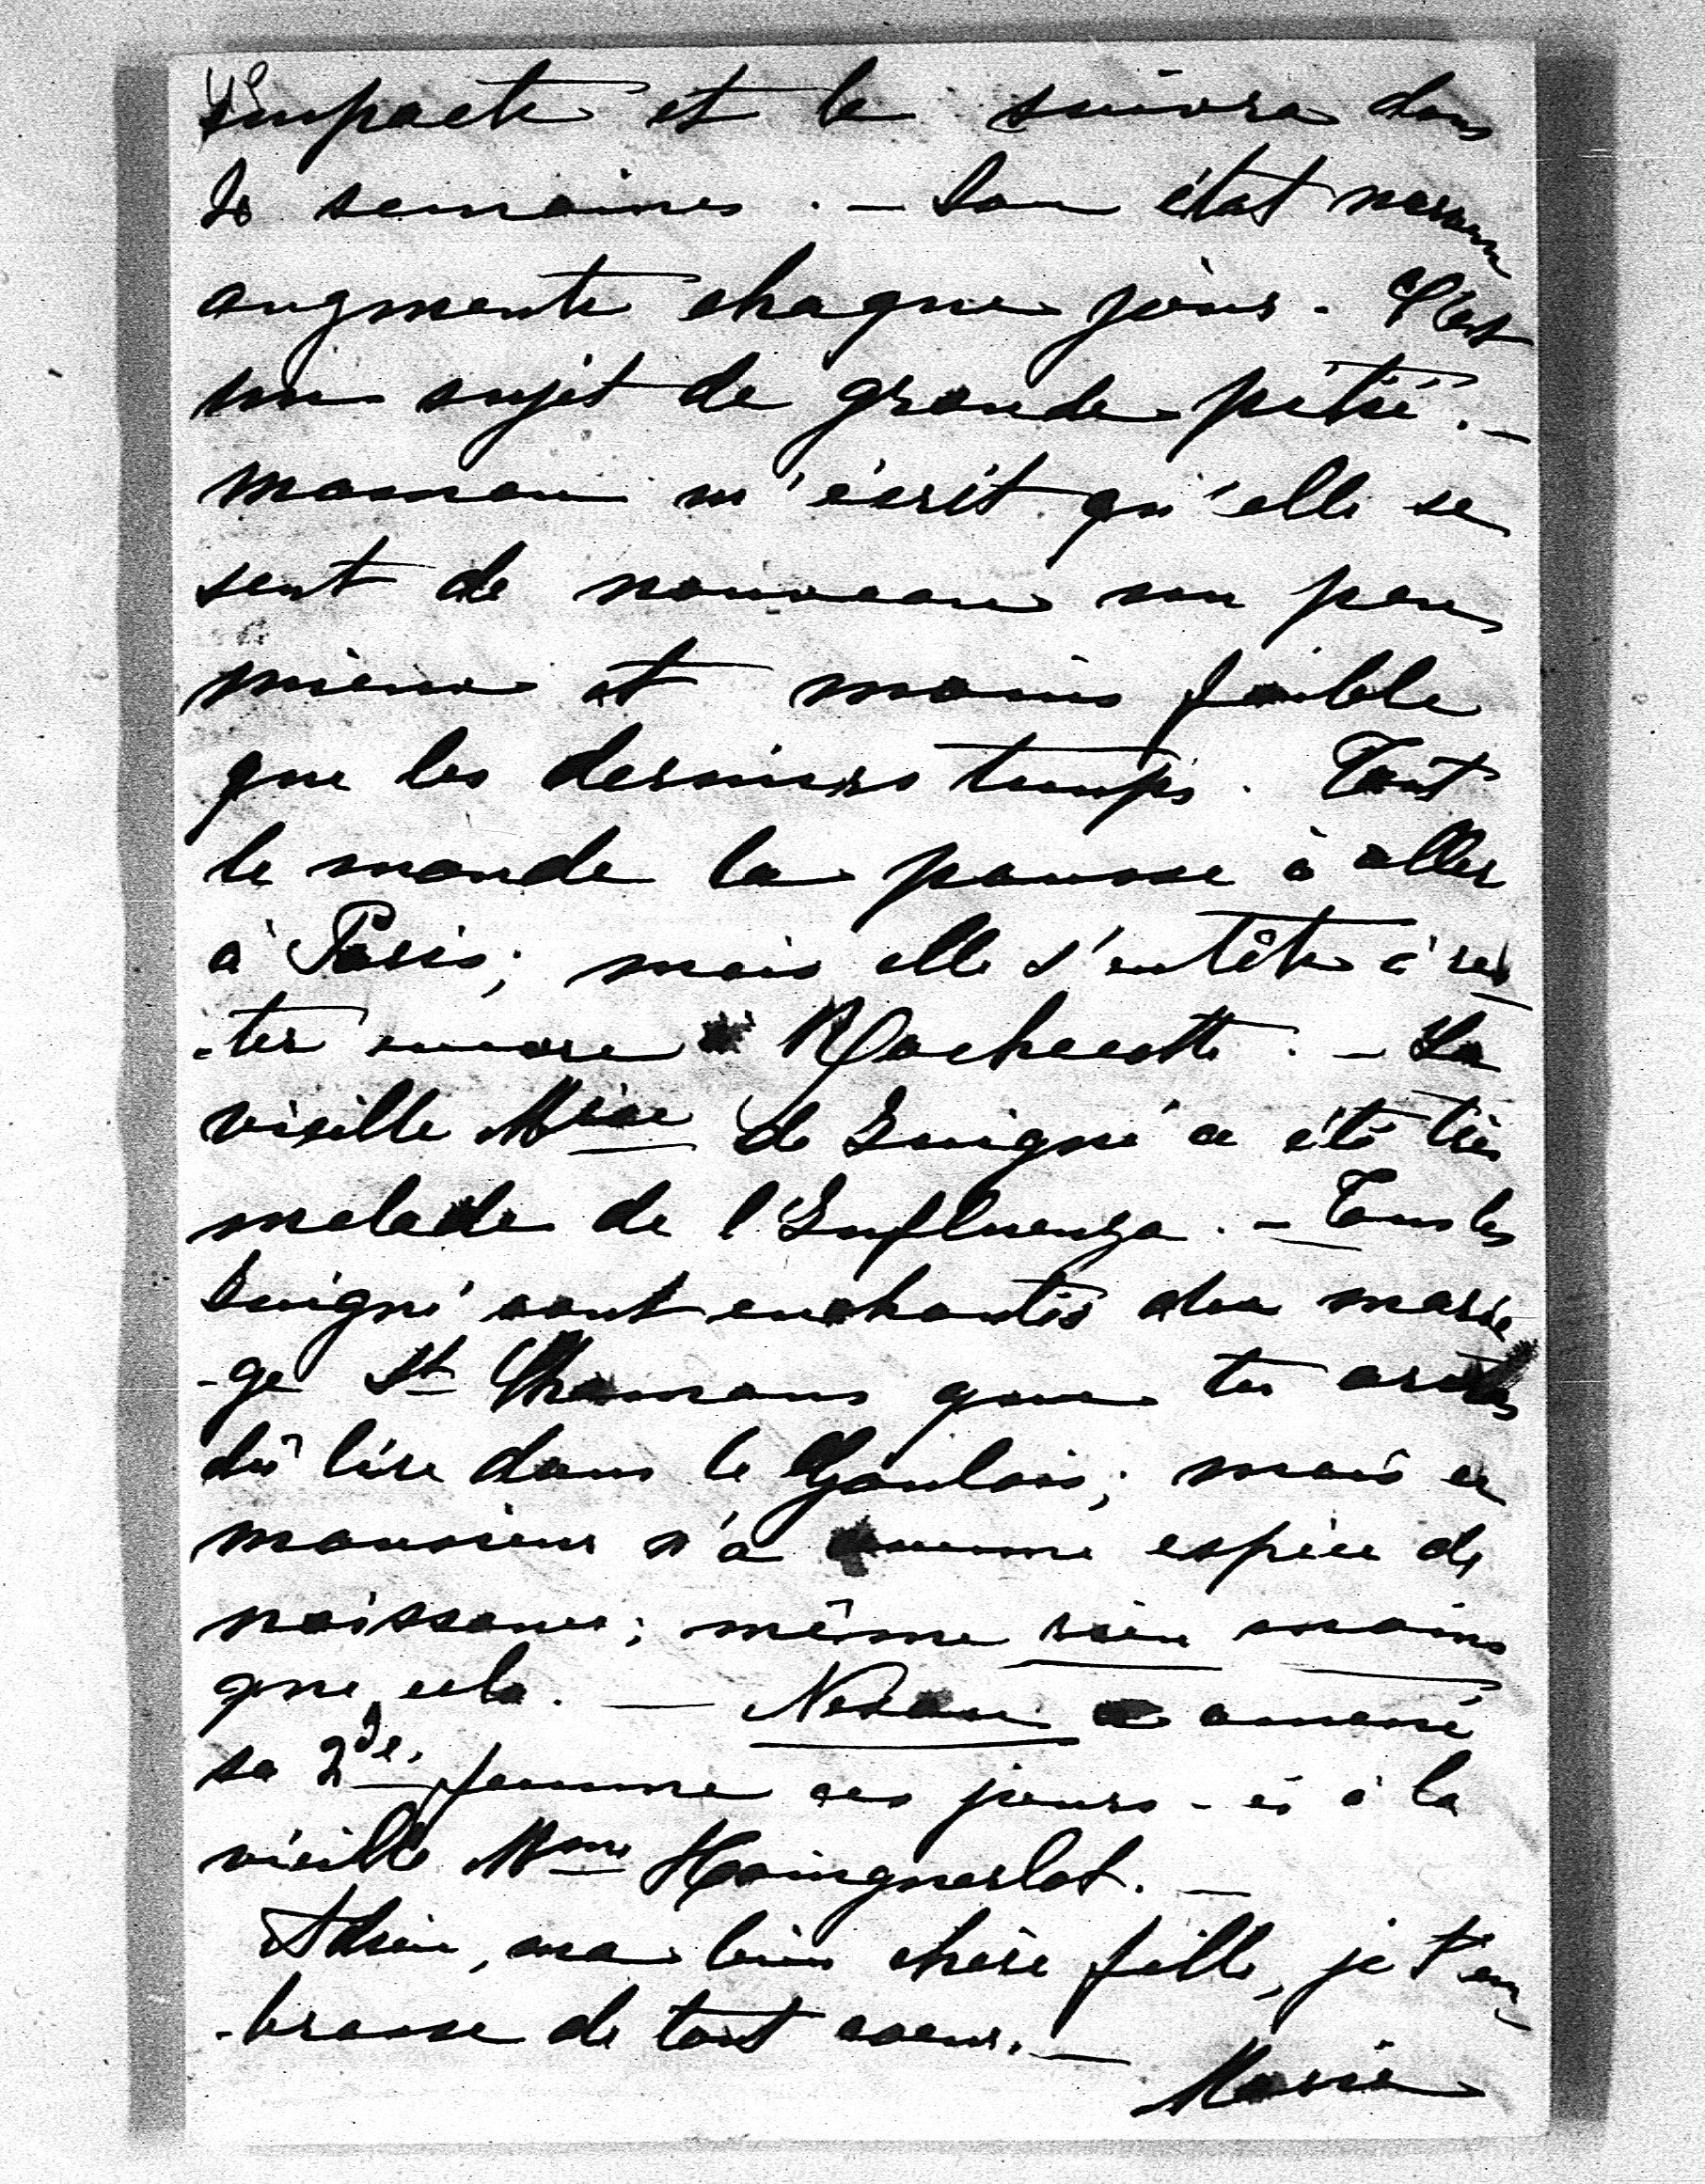 et le suivra dans
semaines. — Son état nerveux
augmente chaque jour. C'est
un sujet de grande pitié. —
maman m'écrit qu'elle se
sent de nouveau un peu
mieux et moins faible
que les derniers temps. Tout
le monde la pousse à aller
à Paris; mais elle s'entête à res
-ter encore à Rochecotte. — La
vieille Mise de Juigné a été très
malade de l'Influenza. — Tous les
Juigné sont enchantés du maria
-ge St Chamans que tu auras
dû lire dans le Gaulois; mais ce
monsieur n'a aucune espèce de
naissance; même rien moins
que cela. — a amené
sa 2de femme ces jours-ci à la
vieille Mme Hainguerlot. —
Adieu, ma bien chère fille, je t'em
-brasse de tout coeur. —
Marie